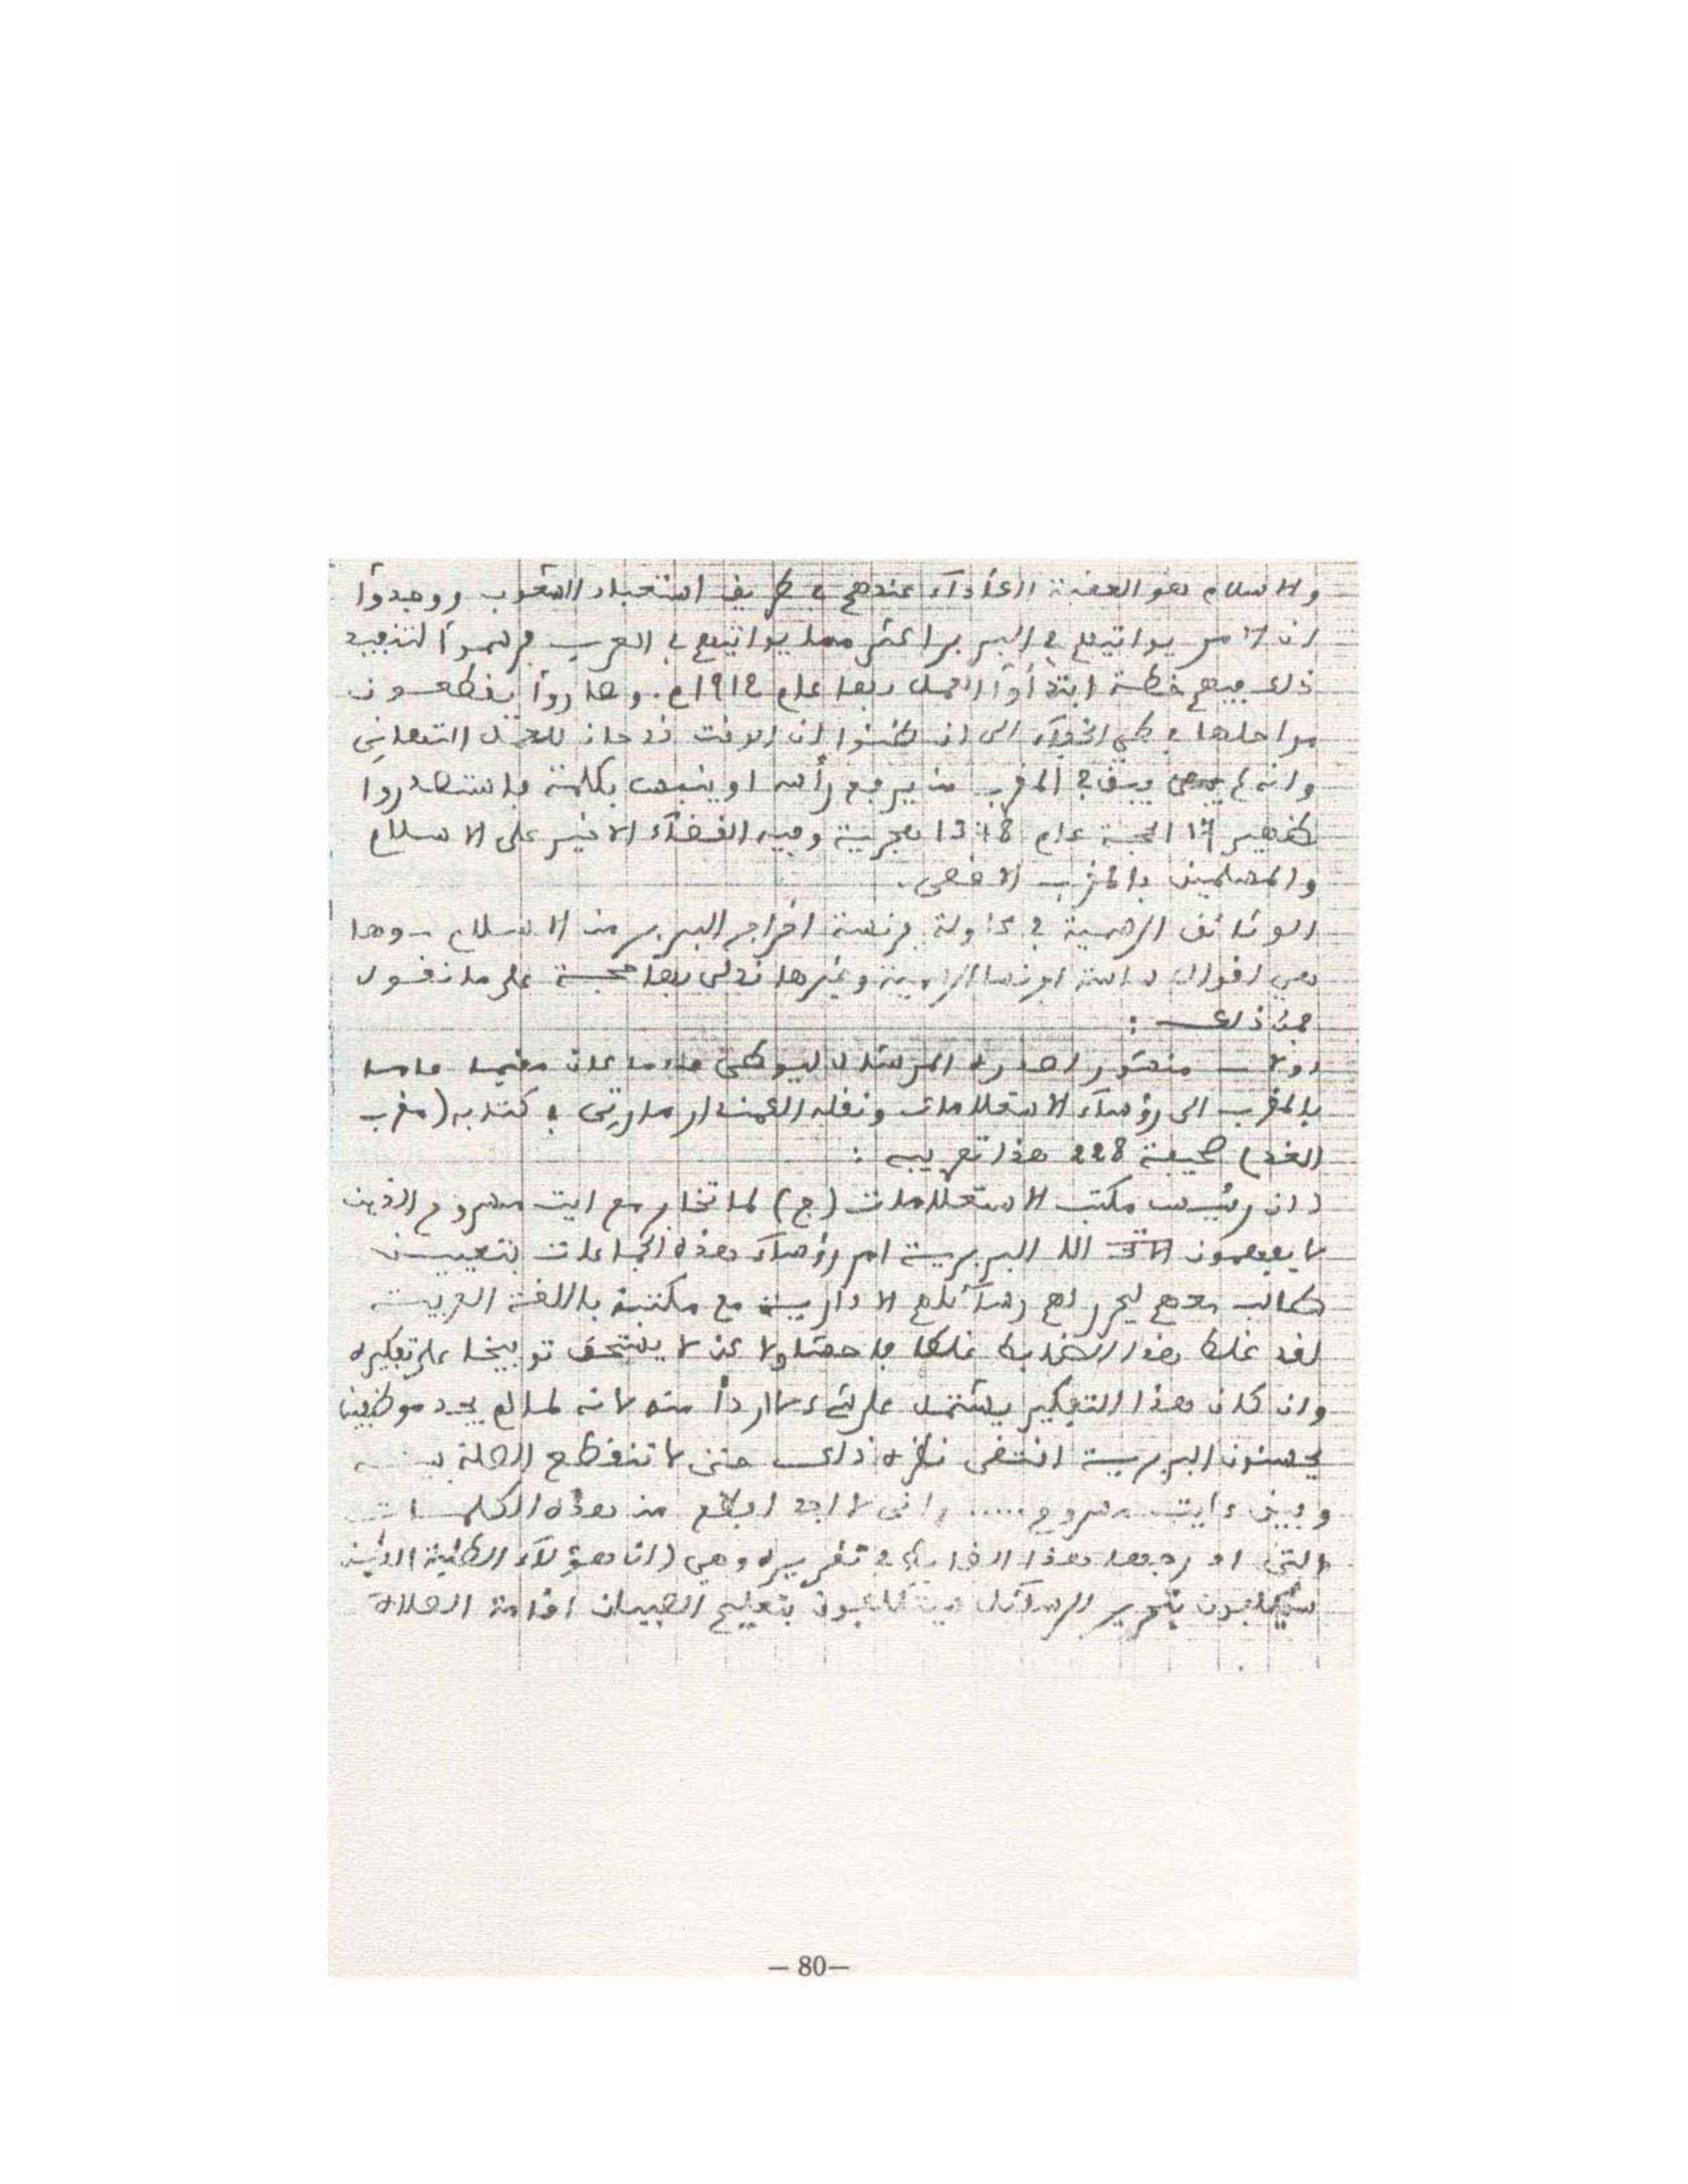 والاسلام هو العقبة الكأداء عندهم في طريق استعباد الشعوب ووجدوا
ان الامر يواتيهم في البربر اكثر مما يواتيهم في العرب فرسموا لتنفيذ
ذلك فيهم خطة ابتدأوا العمل بها عام 1912م. وصاروا يقطعون
مراحلها في طي الخفاء الى ان ظنوا ان الوقت قد حان للعمل النهائي
وانه لم يبق في المغرب من يرفع رأسه او ينبس بكلمة فاستصدروا
ظهير 17 الحجة عام 1348 هجرية وفيه القضاء الاخير على الاسلام
والمسلمين بالمغرب الاقصى.
الوثائق الرسمية في محاولة فرنسة اخراج البربر من الاسلام - وها
هي اقوال ساسة افرنسا الرسمية وغيرها ندلى بها حجة على ما نقول
فمن ذلك :
اولا - منشور اصدره المرشال ليوطي لما كان مقيما عاما
بالمغرب الى رؤساء الاستعلامات ونقله الكمندار مارتي في كتابه (مغرب
الغد) صحيفة 228 هذا تعريبه :
(ان رئيس مكتب الاستعلامات (ج) لما تخابر مع ايت مسروح الذين
لا يفهمون الا البربرية امر رؤساء هذه الجماعات بتعيين
طالب معهم ليحرر لهم رسائلهم الادارية مع مكتبه باللغة العربية
لقد غلط هذا الضابط غلطا فاحشا ولا كن لا يستحق توبيخا على تفكيره
وان كان هذا التفكير يشتمل على شيء لا اردأ منه لانه لما لم يجد موظفين
يحسنون البربرية اقتضى نظره ذلك حتى لا تنقطع الصلة بينه
وبين ءايت مسروح ..... وانى لا اجد ابلغ من هذه الكلمات
التي ادرجها هذا الضابط في تقريره وهي (ان هؤلاء الطلبة الذين
سيكلفون بتحرير الرسائل سيكلفون بتعليم الصبيان اقامة الصلاة
– 80–